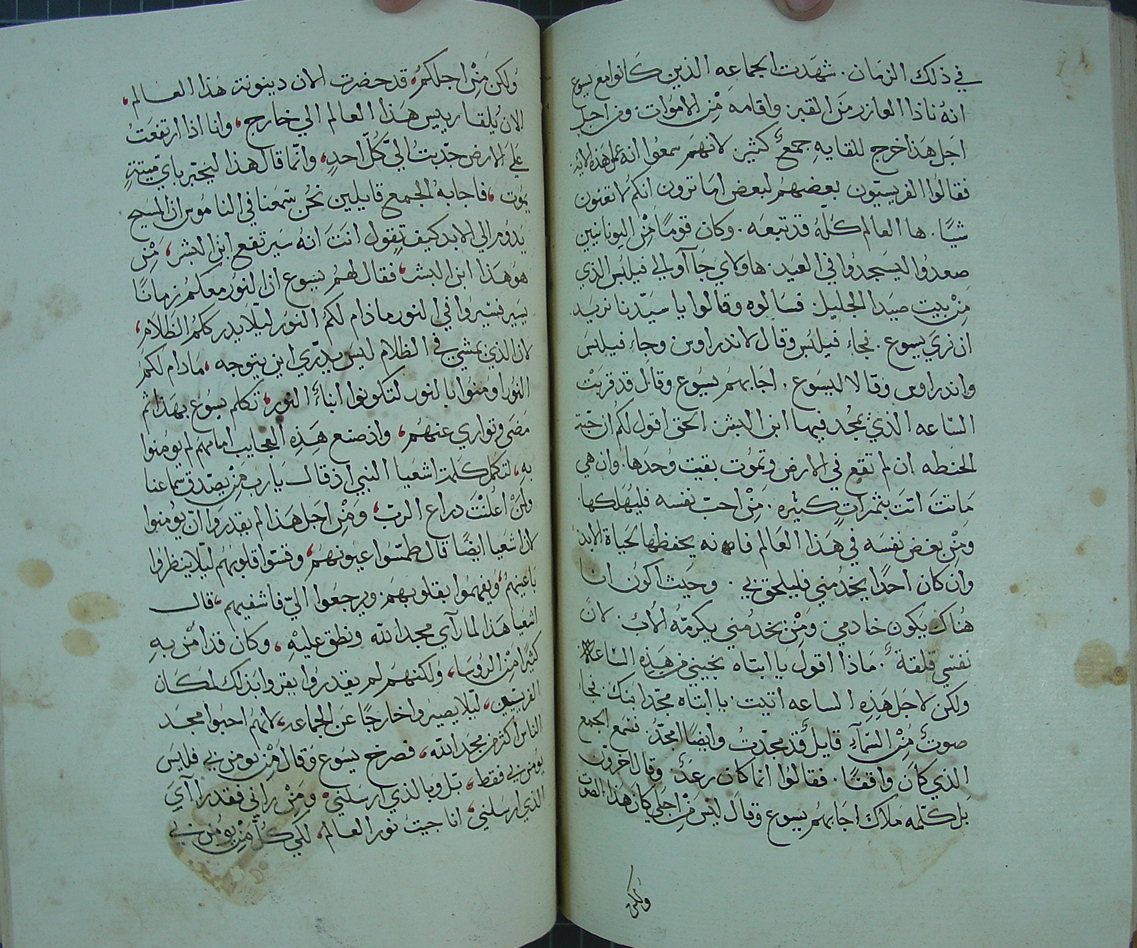 في ذلك الزمان. شهدت الجماعه الذين كانوا مع يسوع
انه نادا العازر من القبر واقامه من الاموات ومن اجل
اجل هذا خرج للقايه جمع كثير لانهم سمعوا انه عمل هذه الايه
فقالوا الفريسيون بعضهم لبعض اما ترون انكم لا تغنون
شيا. ها العالم كله قد تبعه. وكان قوما من اليونانيين
صعدوا ليسجدوا في العيد. هاولاي جاآو الي فيلبس الذي
من بيت صيدا الجليل فسالوه وقالوا يا سيدنا نريد
ان نري يسوع. فجاء فيلبس وقال لاندراوس وجاء فيلبس
واندراوس وقالا ليسوع. اجابهم يسوع وقال قد قربت
الساعه الذي يمجد فيها ابن البشر الحق اقول لكم ان حبة
الحنطه ان لم تقع في الارض وتموت بقيت وحدها. وان هي
ماتت اتت بثمرات كثيره. من احب نفسه فليهلكها
ومن بغض نفسه في هذا العالم فانه يحفظها لحياة الابد
وان كان احدا يخدمني فليلحق بي. وحيث اكون انا
هناك يكون خادمي ومن يخدمني يكرمه الاب. لان
نفسي قلقة. ماذا اقول يا ابتاه نجيني من هذه الساعة
ولكن لاجل هذه الساعه أتيت. يا ابتاه مجد ابنك فجا
صوت من السماء قايل قد مجدت وايضا امجد. فسمع الجمع
الذي كان واقفا. فقالوا انما كان رعد. وقال اخرون
بل كلمه ملاك اجابهم يسوع وقال ليس من اجلي كان هذا الصوت
ولكن
ولكن من اجلكم، قد حضرت الان دينونة هذا العالم،
الان يلقا رييس هذا العالم الي خارج، وانا اذا ارتفعت
علي الارض جذبت الي كل احد، وانما قال هذا ليخبر باي ميتة
يموت، فاجابه الجمع قايلين نحن سمعنا في الناموس ان المسيح
يدوم الي الابد كيف تقول انت انه سيرتفع ابن البشر، من
هو هذا ابن البشر، فقال لهم يسوع ان النور معكم زمانا
يسير نسيروا في النور ماذام لكم النور ليلا يدرككم الظلام،
لان الذي يمشي في الظلام ليس يدري اين يتوجه، مادام لكم
النور اومنوا بالنور لتكونوا ابناء النور، تكلم يسوع بهذا ثم
مضي وتواري عنهم، واذ صنع هذه العجايب امامهم لم يومنوا
به، لتكمل كلمة اشعيا النبي اذ قال يا رب من يصدق سماعنا
ولمن اعلنت دراع الرب، ومن اجل هذا لم يقدروا ان يومنوا
لان اشعيا ايضا قال طمسوا عيونهم، وقستوا قلوبهم ليلا ينظروا
باعينهم، ويفهموا بقلوبهم ويرجعوا الي فاشفيهم، قال
اشعيا هذا لما رآي مجد الله ونطق عليه، وكان قد امن به
كثيرا من الروسا، ولكنهم لم يقدروا يقروا بذلك لمكان
الفريسيين، ليلا يصيروا خارجا عن الجماعه، لانهم احبوا مجد
الناس اكثر من مجد الله، فصرخ يسوع وقال من يومن بي فليس
يومن بي فقط، بل وبالذي ارسلني، ومن راني فقد رآي
الذي ارسلني، انا جيت نور العالم، لكي كل من يومن بي